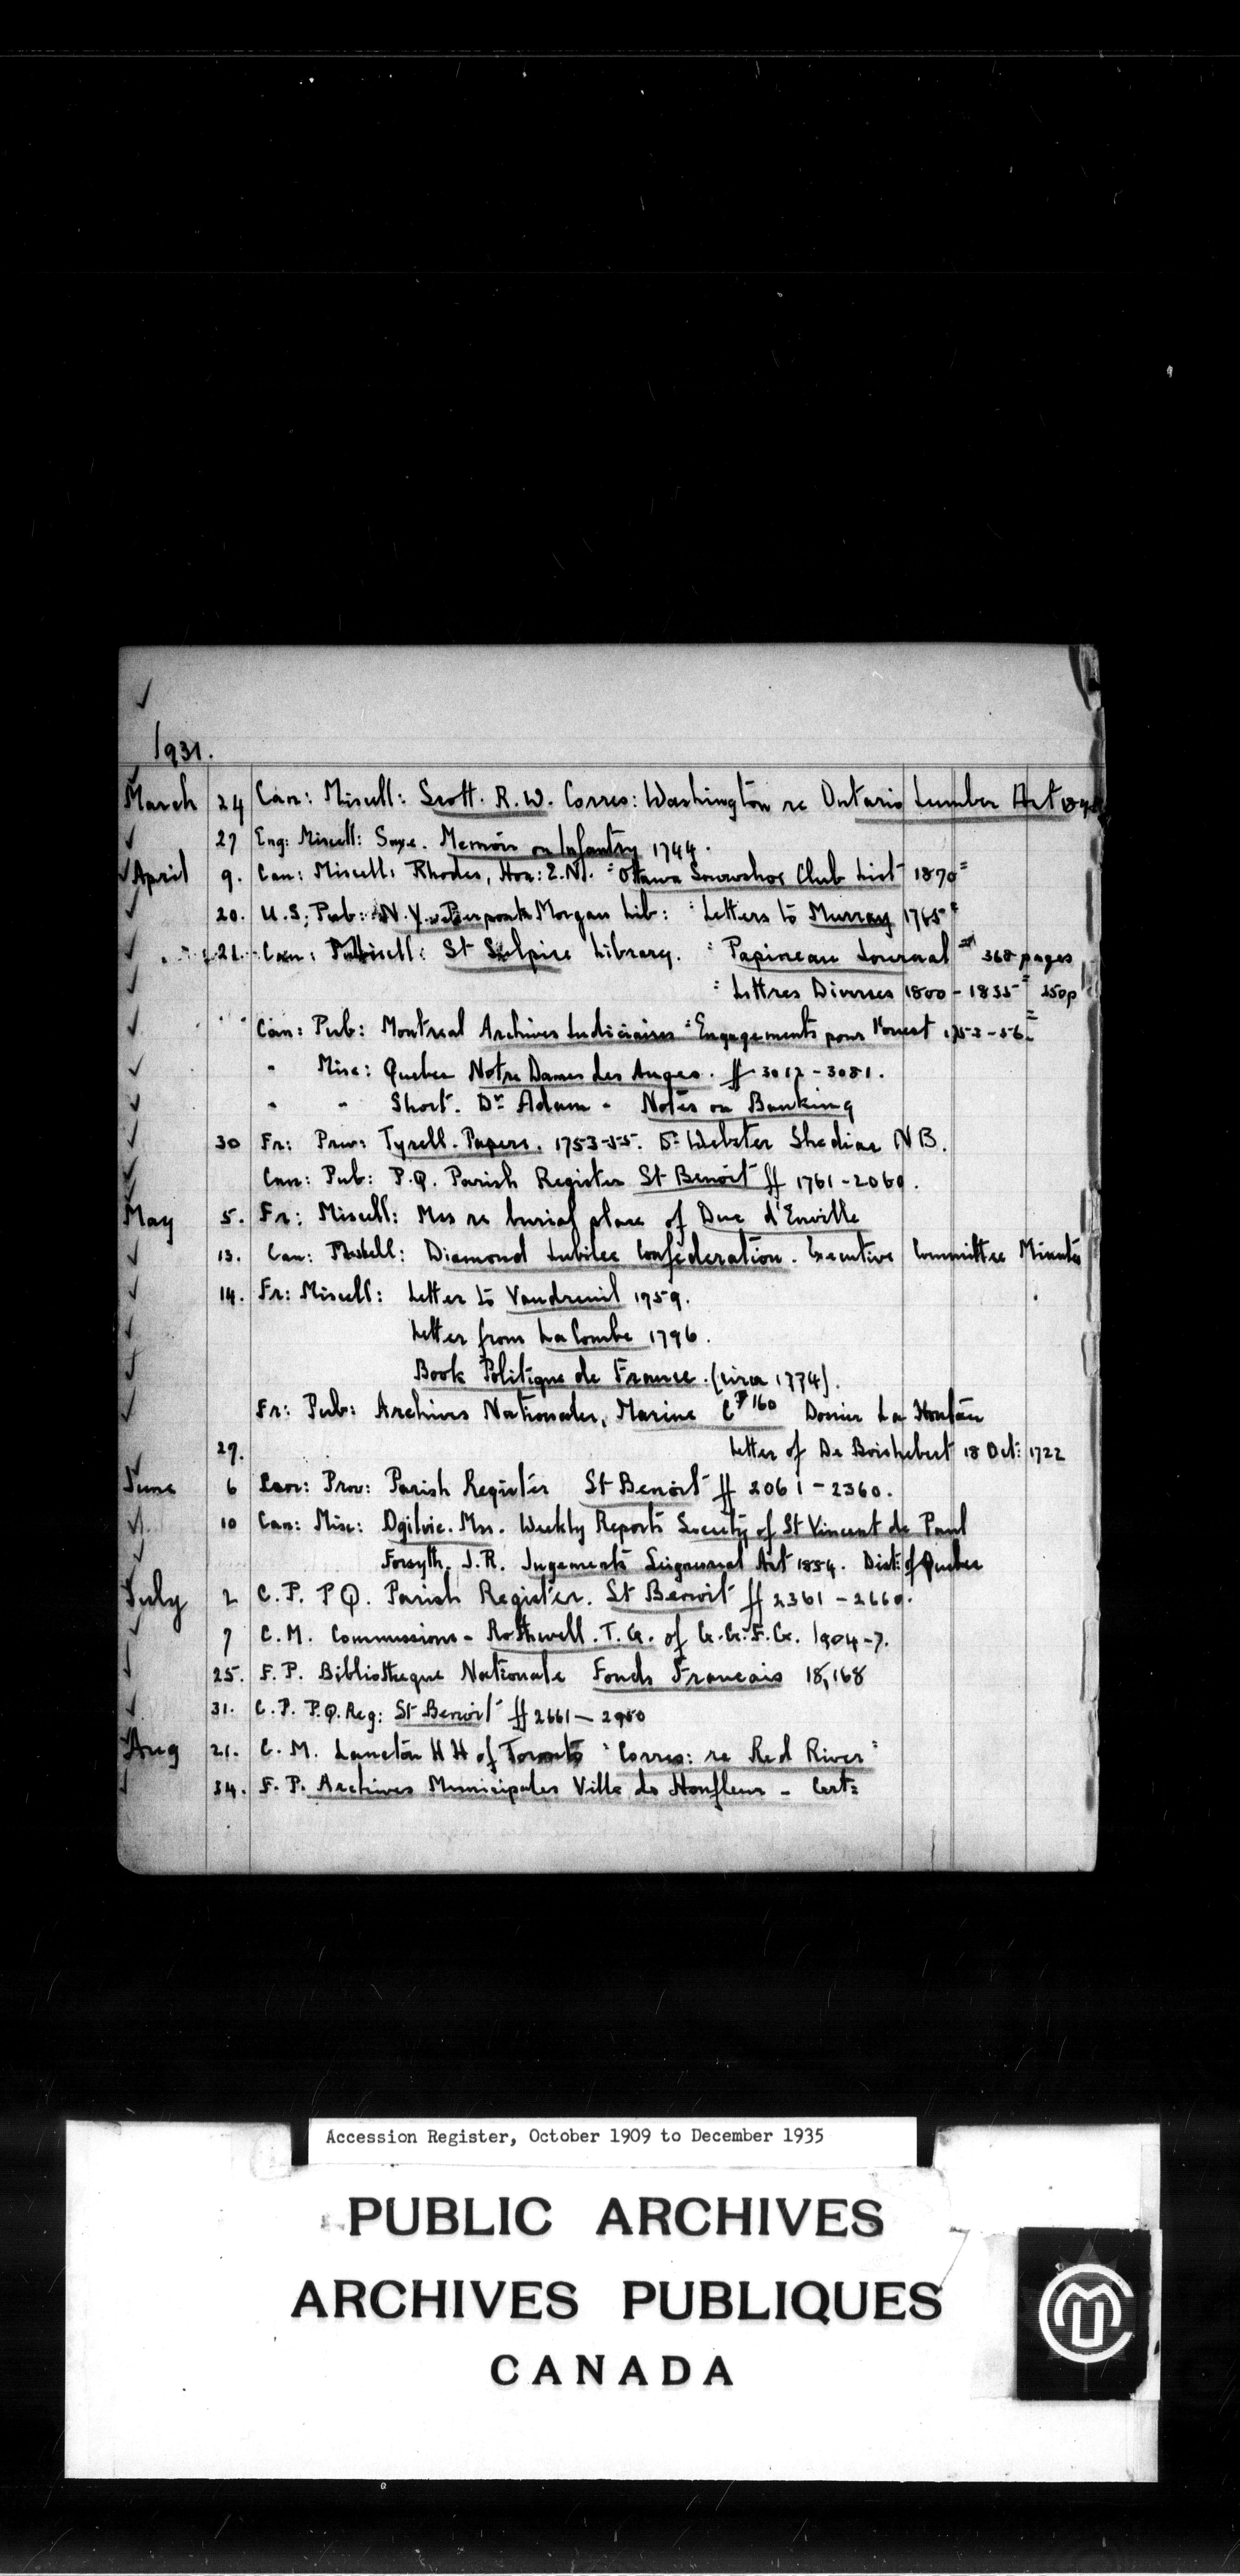 1931.
March 24 Can: Miscell: Scott. R. W. Corres: Washington re Ontario Lumber Act
27 Eng: Miscell: Saxe. Memoir on Infantry 1744.
April 9. Can: Miscell: Rhodes, Hon: E.N. "Ottawa Snowshoe Club List 1870"
20. U.S: Pub: N.Y. Pierpont Morgan Lib: "Letters to Murray 1765"
21. Can: Miscell: St Sulpice Library. "Papineau Journal" 368 pages
"Lettres Diverses 1800-1835" 250p
Can: Pub: Montreal Archives Judiciaires "Engagements pour l'ouest 1753-56"
" Misc: Quebec Notre Dame des Anges. ff 3012-3081.
" " Short. Dr Adam - Notes on Banking
30 Fr: Priv: Tyrell. Papers. 1753-55. Dr Webster Shediac N B.
Can: Pub: P.Q. Parish Register St Benoit ff 1761-2060.
May 5. Fr: Miscell: Mss re burial place of Duc d'Enville
13. Can: Miscell: Diamond Jubilee Confederation. Executive Committee Minutes
14. Fr: Miscell: Letter to Vaudreuil 1759.
Letter from LaCombe 1796.
Book Politique de France. (circa 1774).
Fr: Pub: Archives Nationales, Marine C7 160 Dossier La Hontan
29. Letter of De Boishebert 18 Oct: 1722
June 6 Can: Prov: Parish Register St Benoit ff 2061-2360.
10 Can: Misc: Ogilvie. Mrs. Weekly Reports Society of St Vincent de Paul
Forsyth. J.R. Jugements Seigneurial Act 1854. Dist: of Quebec
July 2 C. P. P Q. Parish Register. St Benoit ff 2361-2660.
7 C. M. Commissions - Rothwell. T. G. of G.G.F.G. 1904-7.
25. F. P. Bibliotheque Nationale Fonds Francais 18,168
31. C. P. P.Q. Reg: St Benoit ff 2661-2980
Aug 21. C. M. Langton H H of Toronto "Corres: re Red River"
34. F. P. Archives Municipales Ville de Honfleur - Cart:
Accession Register, October 1909 to December 1935
PUBLIC ARCHIVES
ARCHIVES PUBLIQUES
CANADA